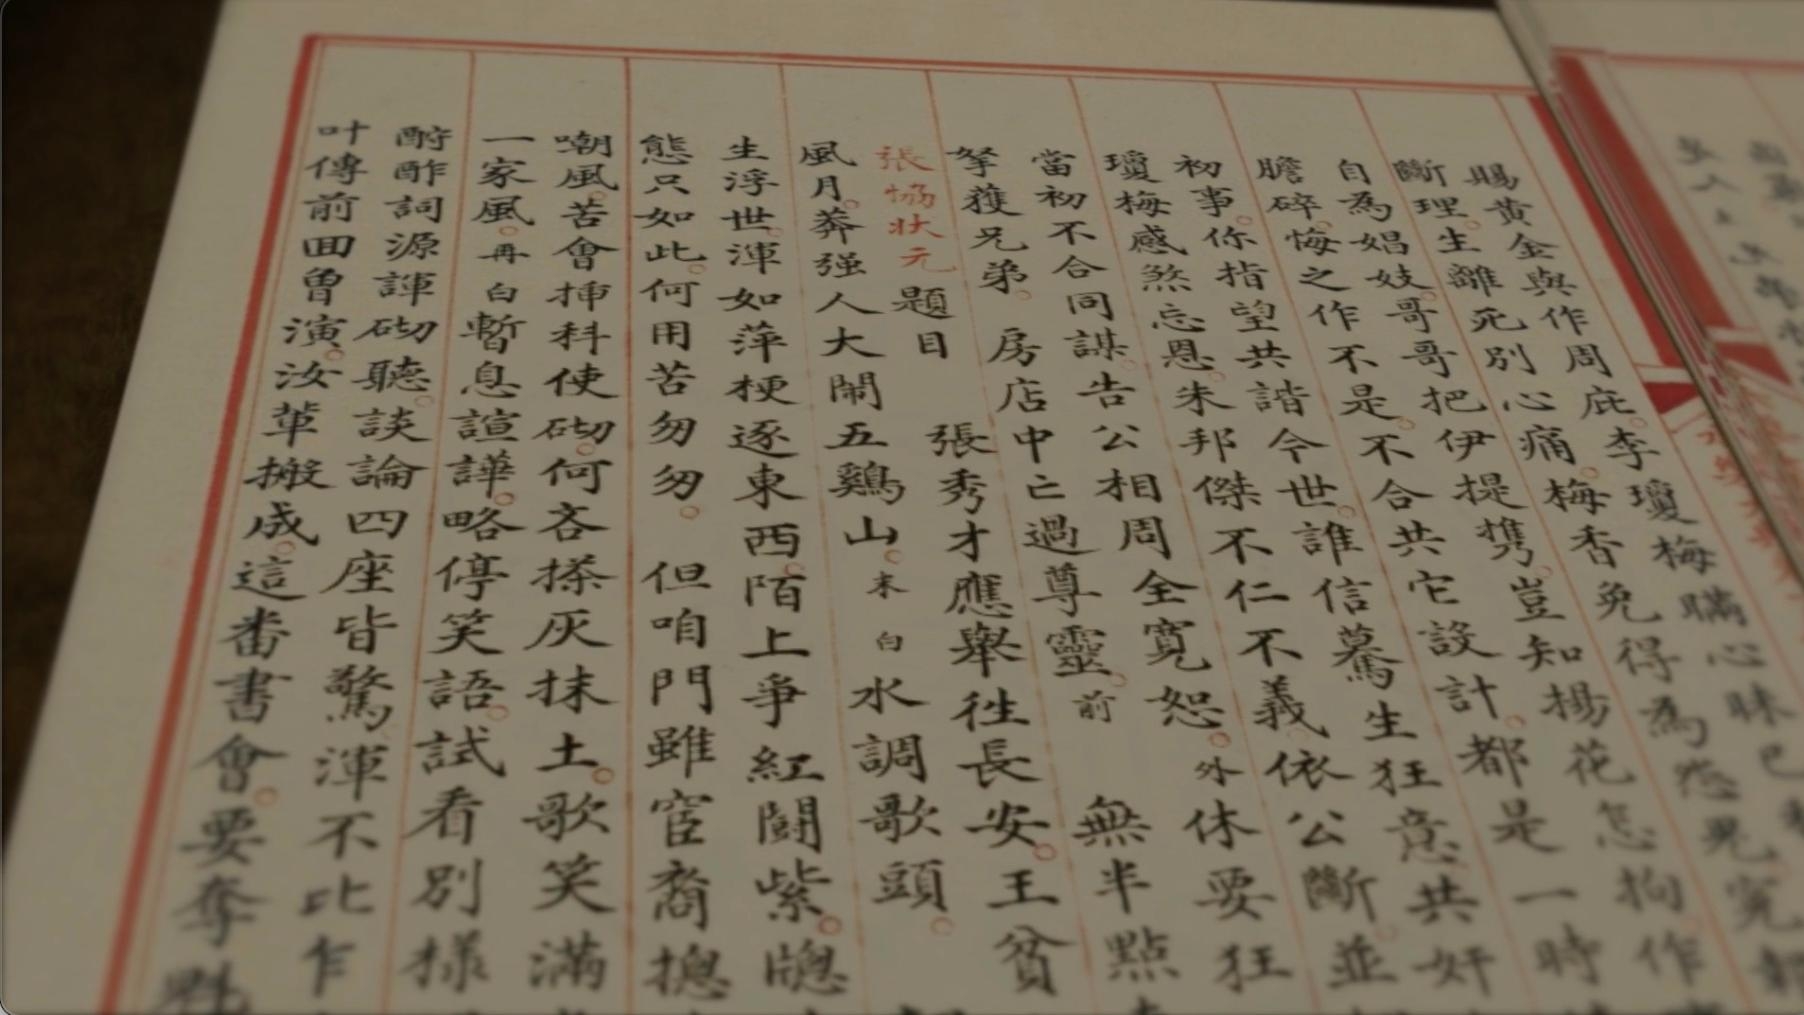 賜黃金與作周庇李瓊梅瞞心昧已
斷理生離死別心痛梅香免得為怨
自為娼妓哥哥把伊提携豈知楊花怎拘作
膽碎悔之作不是不合共它設計都是一時
初事你指望共諧今世誰信驀生狂意共奸
瓊梅感煞忘恩朱邦傑不仁不義依公斷並
當初不合同謀告公相周全寬恕外休要狂
拏獲兄弟房店中亡過尊靈前無半點
張協狀元題目張秀才應舉徃長安王貧
風月莽强人大鬧五鷄山末白水調歌頭
生浮世渾如萍梗逐東西陌上爭紅鬪紫牎
態只如此何用苦匆匆但咱門雖宦裔摠
嘲風苦會揷科使砌何吝搽灰抹土歌笑滿
一家風再白暫息諠譁略停笑語試看別樣
酧酢詞源諢砌聽談論四座皆驚渾不比乍
叶傳前囬曾演汝軰搬成這番書會要奪魁